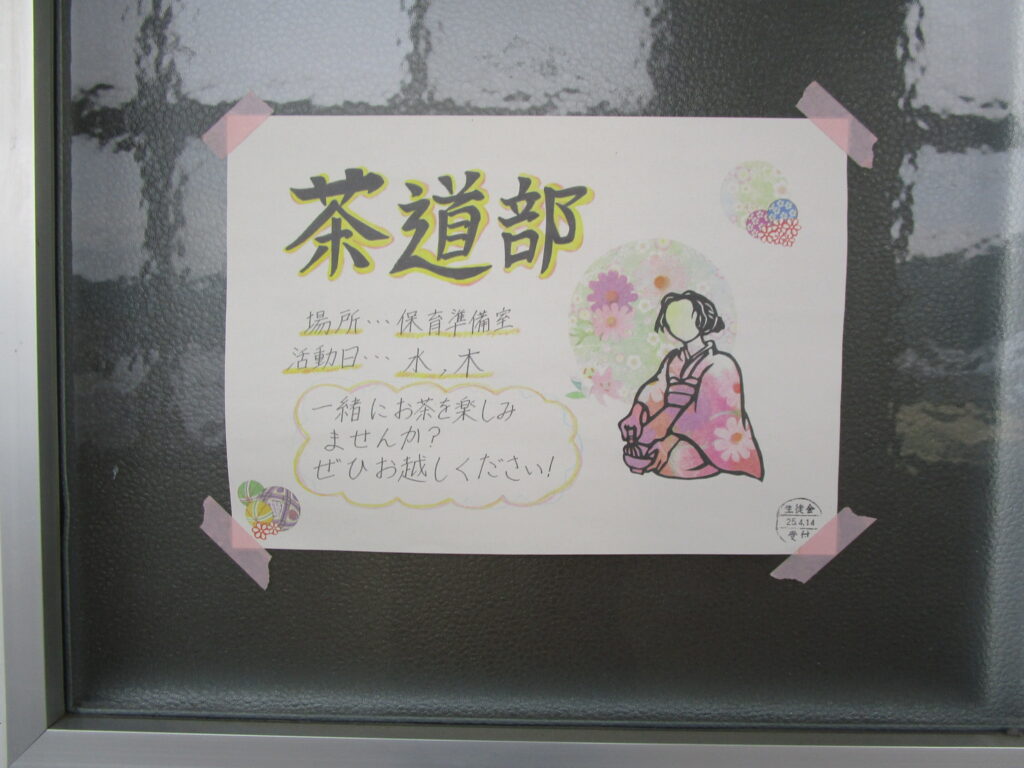 茶道部
場所…保育準備室
活動日…水,木
一緒にお茶を楽しみ
ませんか?
ぜひお越しください!
生徒会
25.4.14
受付